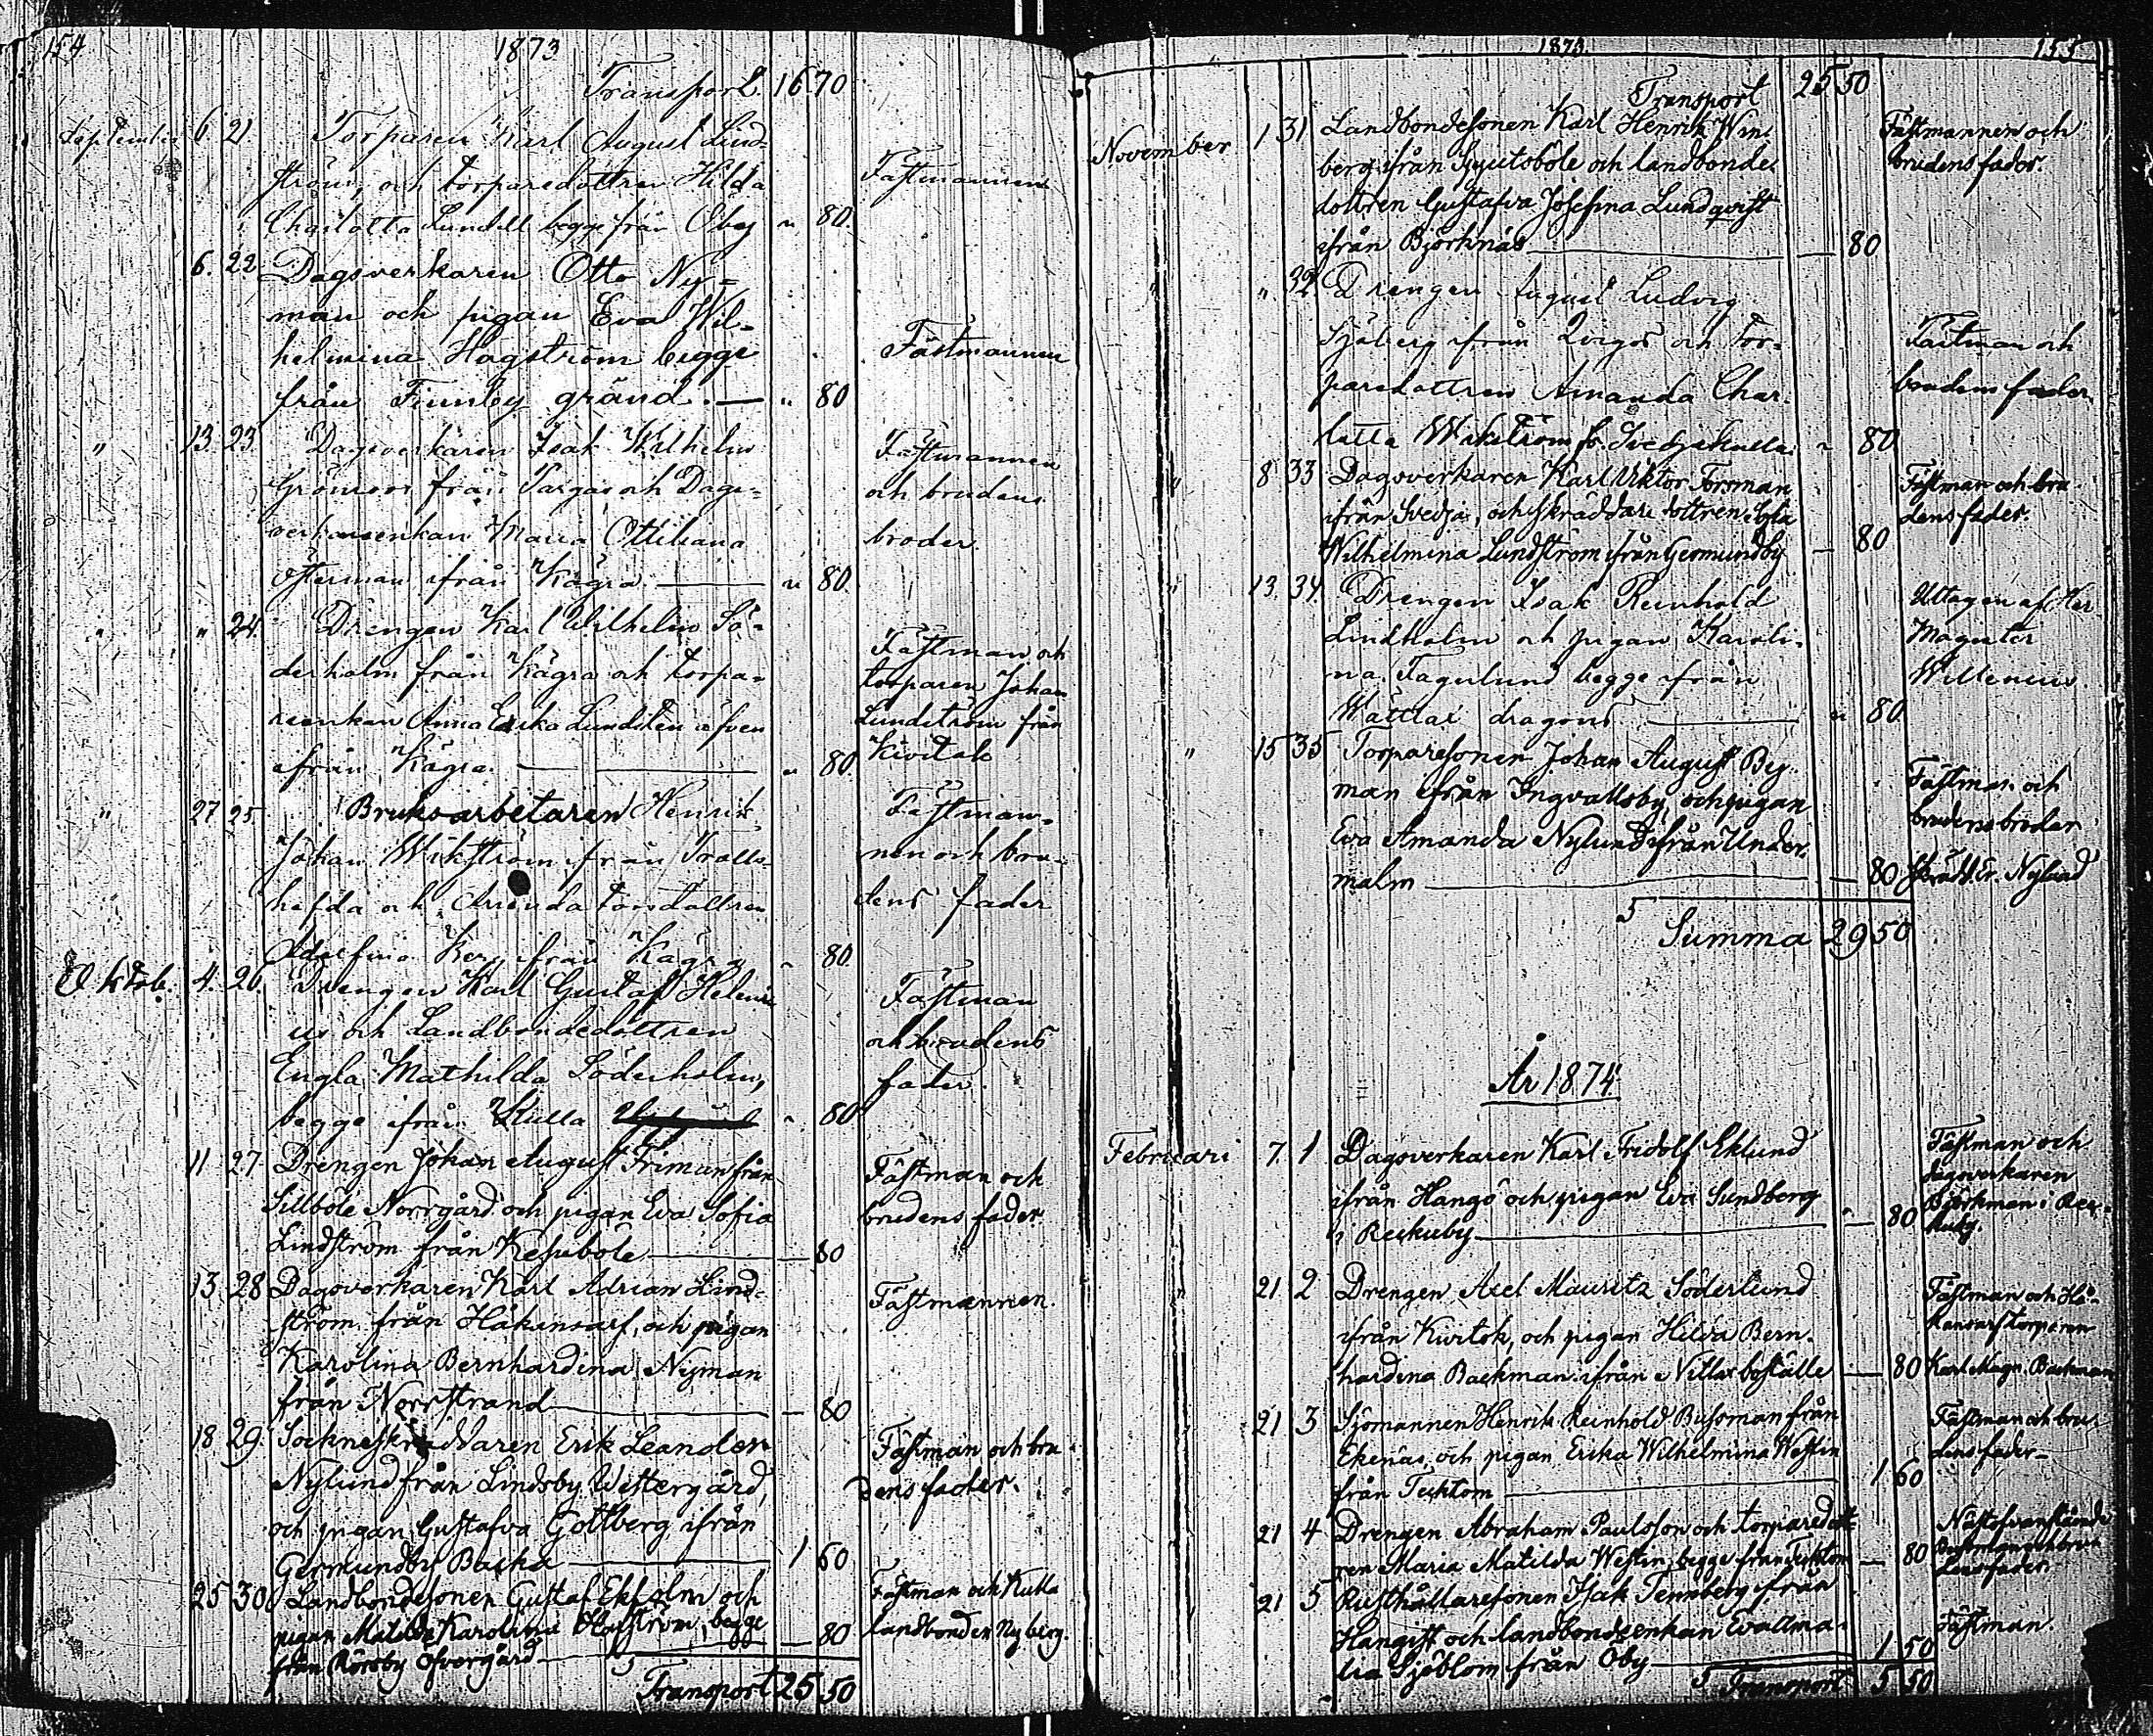 154
1873
Transport 16 70
September 6 21. Torparen Karl August Lind-
ström, och torparedottren Hilda
Charlotta Lundell begge från Öby " 80.
Fästmannen
6. 22. Dagsverkaren Otto Ny-
man och pigan Eva Wil-
helmina Hagström begge
från Finnby gränd. — " 80
Fästmannen
" 13. 23. Dagsverkaren Isak Wilhelm
Grönroos från Pargas och Dags-
verkareenkan Maria Ottiliana
Österman ifrån Kägra — " 80.
Fästmannen
och brudens
broder.
" " 24. Drengen Karl Wilhelm Sö-
derholm från Kägra och torpa-
reenkan Anna Erika Lundsten äfven
ifrån Kägra — " 80.
Fästman och
torparen Johan
Lundström från
Kivitok
" 27 25. Bruksarbetaren Henrik
Johan Wikström ifrån Tralls-
hefda och
Adolfina från Kägra " 80.
Fästman-
nen och bru-
dens fader
Oktob. 4. 26. Drengen Karl Gustaf Heleni-
us och Landbondedottren
Engla Mathilda Söderholm,
begge ifrån Kulla " 80
Fästman
och brudens
fader.
11 27 Drengen Johan August Friman från
Sillböle Norrgård och pigan Eva Sofia
Lindström från Kesubole — 80
Fästman och
brudens fader
13 28 Dagsverkaren Karl Adrian Lind-
ström från Håkansarf, och pigan
Karolina Bernhardina Nyman
från Norrstrand — 80
Fästmannen.
18 29. Sockneskräddaren Erik Leander
Nylund från Lindsby Westergård,
och pigan Gustafva Gottberg ifrån
Germundby Backa — 1 60
Fästman och bru-
dens fader.
25 30 Landbondesonen Gustaf Ekholm och
pigan Matilda Karolina Hafström, begge
från Rörsby Öfvergård — 80
Fästman och Kulla
landbonden Nyberg.
5 Transport 25 50
1873.
155
Transport 25 50
November 1 31 Landbondesonen Karl Henrik Win-
berg ifrån och landbonde-
dottren Gustafva Josefina Lundqvist
ifrån Björknäs — 80
Fästmannen och
brudens fader.
" " 32 Drengen August Ludvig
Sjöberg ifrån och Tor-
paredottren Amanda Char-
lotta Wikström fr. Svedjekulla " 80
Fästman och
brudens fader.
" 8 33 Dagsverkaren Karl Viktor Forsman
ifrån Svedja, och skräddaredottren
Wilhelmina Lundström ifrån Germundby — 80
Fästman och bru-
dens fader.
" 13. 34. Drengen Isak Reinhold
Lindholm och pigan Karoli-
na Fagerlund begge ifrån
Wättlax dragons — " 80.
Uttagen af Her
Magister
Willenius
" 15 35 Torparesonen Johan August By-
man ifrån Ingvallsby, och pigan
Eva Amanda Nylund ifrån Under-
malm — 80
Fästman och
brudens broder
Skrädd. Er. Nylund
5
Summa 29 50
År 1874.
Februari 7. 1 Dagsverkaren Karl Fridolf Eklund
ifrån Hangö och pigan Eva Sundberg
i Reckuby — 80
Fästman och
dagsverkaren
Björkman i Rec-
kuby.
" 21 2 Drengen Axel Mauritz Söderlund
ifrån Kivitok, och pigan Hilda Bern-
hardina Backman ifrån boställe — 80
Fästman och Hå-
kansarf torparen
Karl Magn. Backman
21 3 Sjömannen Henrik Reinhold Bussman från
Ekenäs, och pigan Erika Wilhelmina Westin
från Tecktom — 1 60
Fästman och bru-
dens fader.
21 4 Drengen Abraham Paulsson och torparedott-
ren Maria Matilda Westin, begge från Tecktom — 80
Nästofvanstående
Bussman och bru-
dens fader.
21 5 Rusthållaresonen Isak Tennberg från
Hangist och landbondeenkan Eva Ama-
lia Sjöblom från Öby — 1 50
Fästman.
5 Transport 5 50